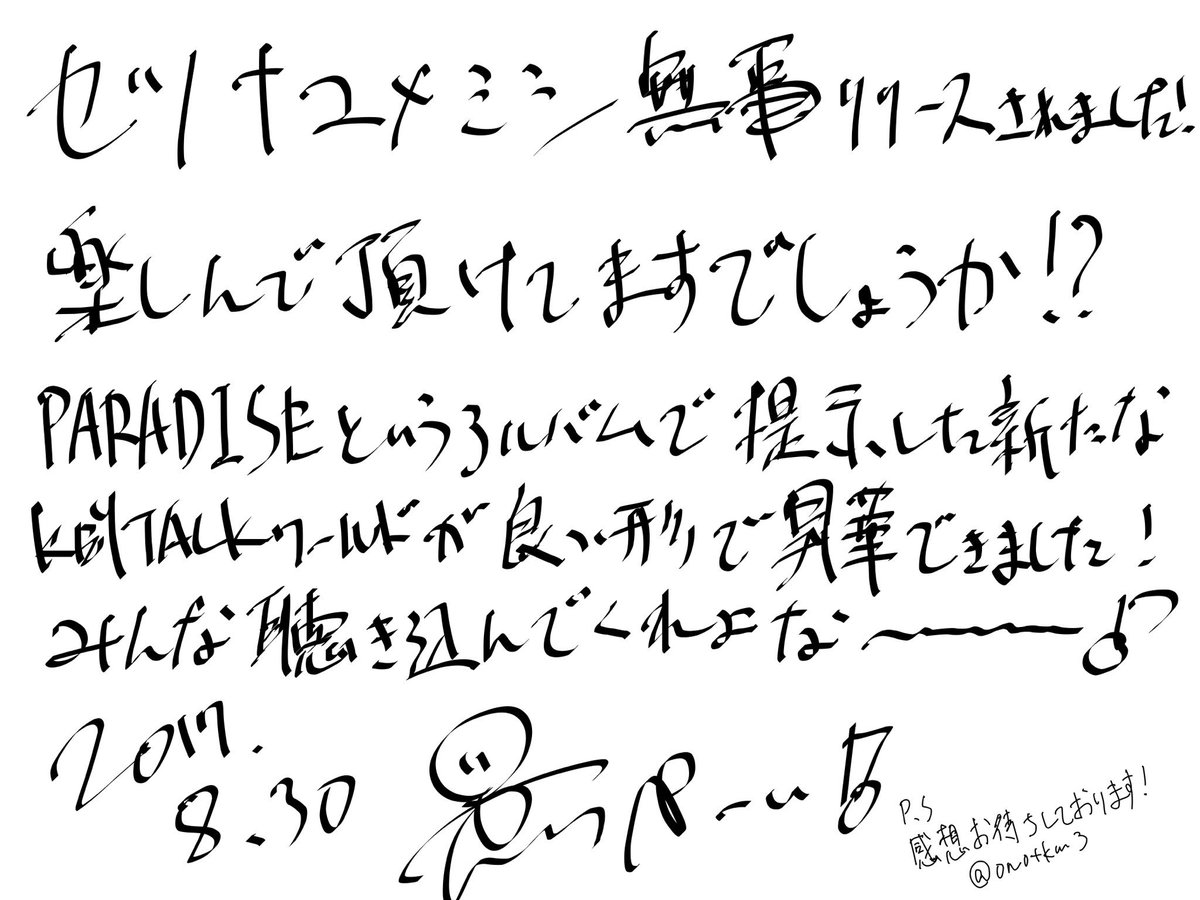 セツナユメミシ無事リリースされました!
楽しんで頂けてますでしょうか!?
PARADISEというアルバムで提示した新たな
KEYTALKワールドが良い形で昇華できました!
みんな聴き込んでくれよな〜♪
2017.
8.30
P.S
感想お待ちしております!
@onotkm3